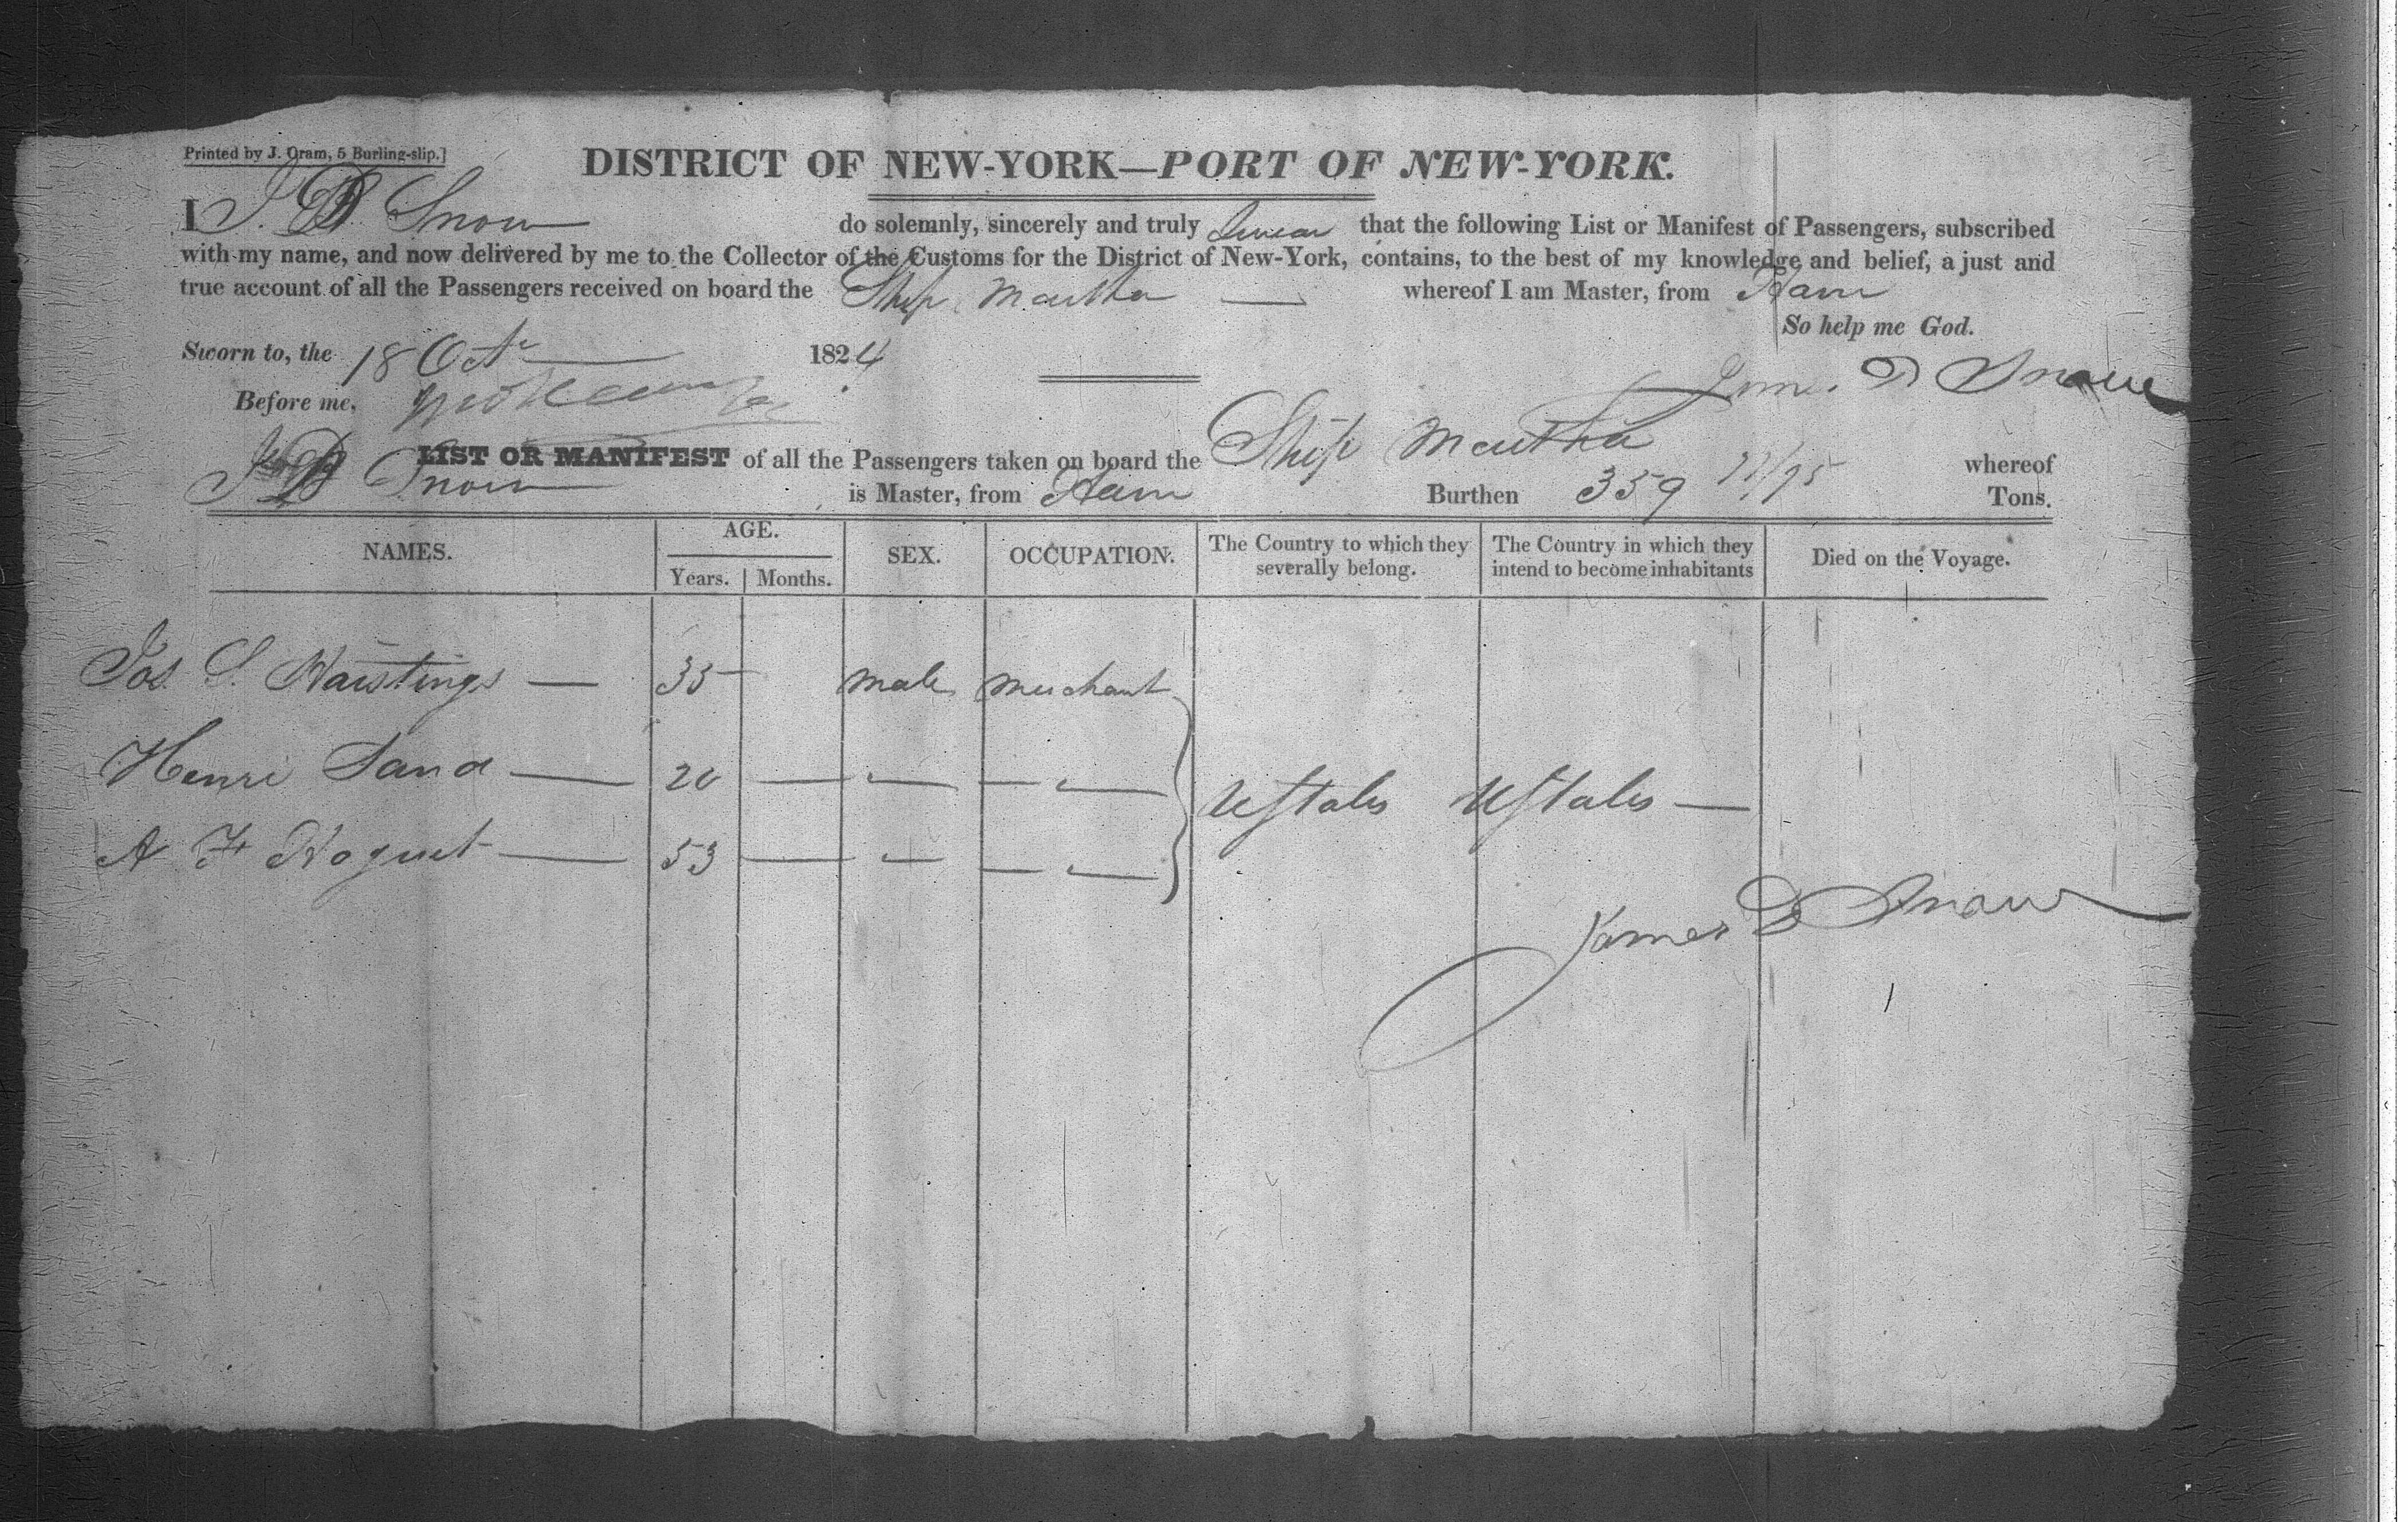 Printed by J. Oram, 5 Burling-slip.]
DISTRICT OF NEW-YORK—PORT OF NEW-YORK.
I J. D Snow do solemnly, sincerely and truly Swear that the following List or Manifest of Passengers, subscribed
with my name, and now delivered by me to the Collector of the Customs for the District of New-York, contains, to the best of my knowledge and belief, a just and
true account of all the Passengers received on board the Ship Martha — whereof I am Master, from Havre
So help me God.
Sworn to, the 18 Octr 1824
James D Snow
Before me,
LIST OR MANIFEST of all the Passengers taken on board the Ship Martha whereof
J D Snow is Master, from Havre Burthen 359 Tons.
NAMES. AGE. SEX. OCCUPATION. The Country to which they severally belong. The Country in which they intend to become inhabitants Died on the Voyage.
Years. Months.
Jos. S. Hastings — 35 male merchant
Henri Sand — 20 — — — —
UStates UStates —
A F Hoguet — 53 — — — —
James D Snow